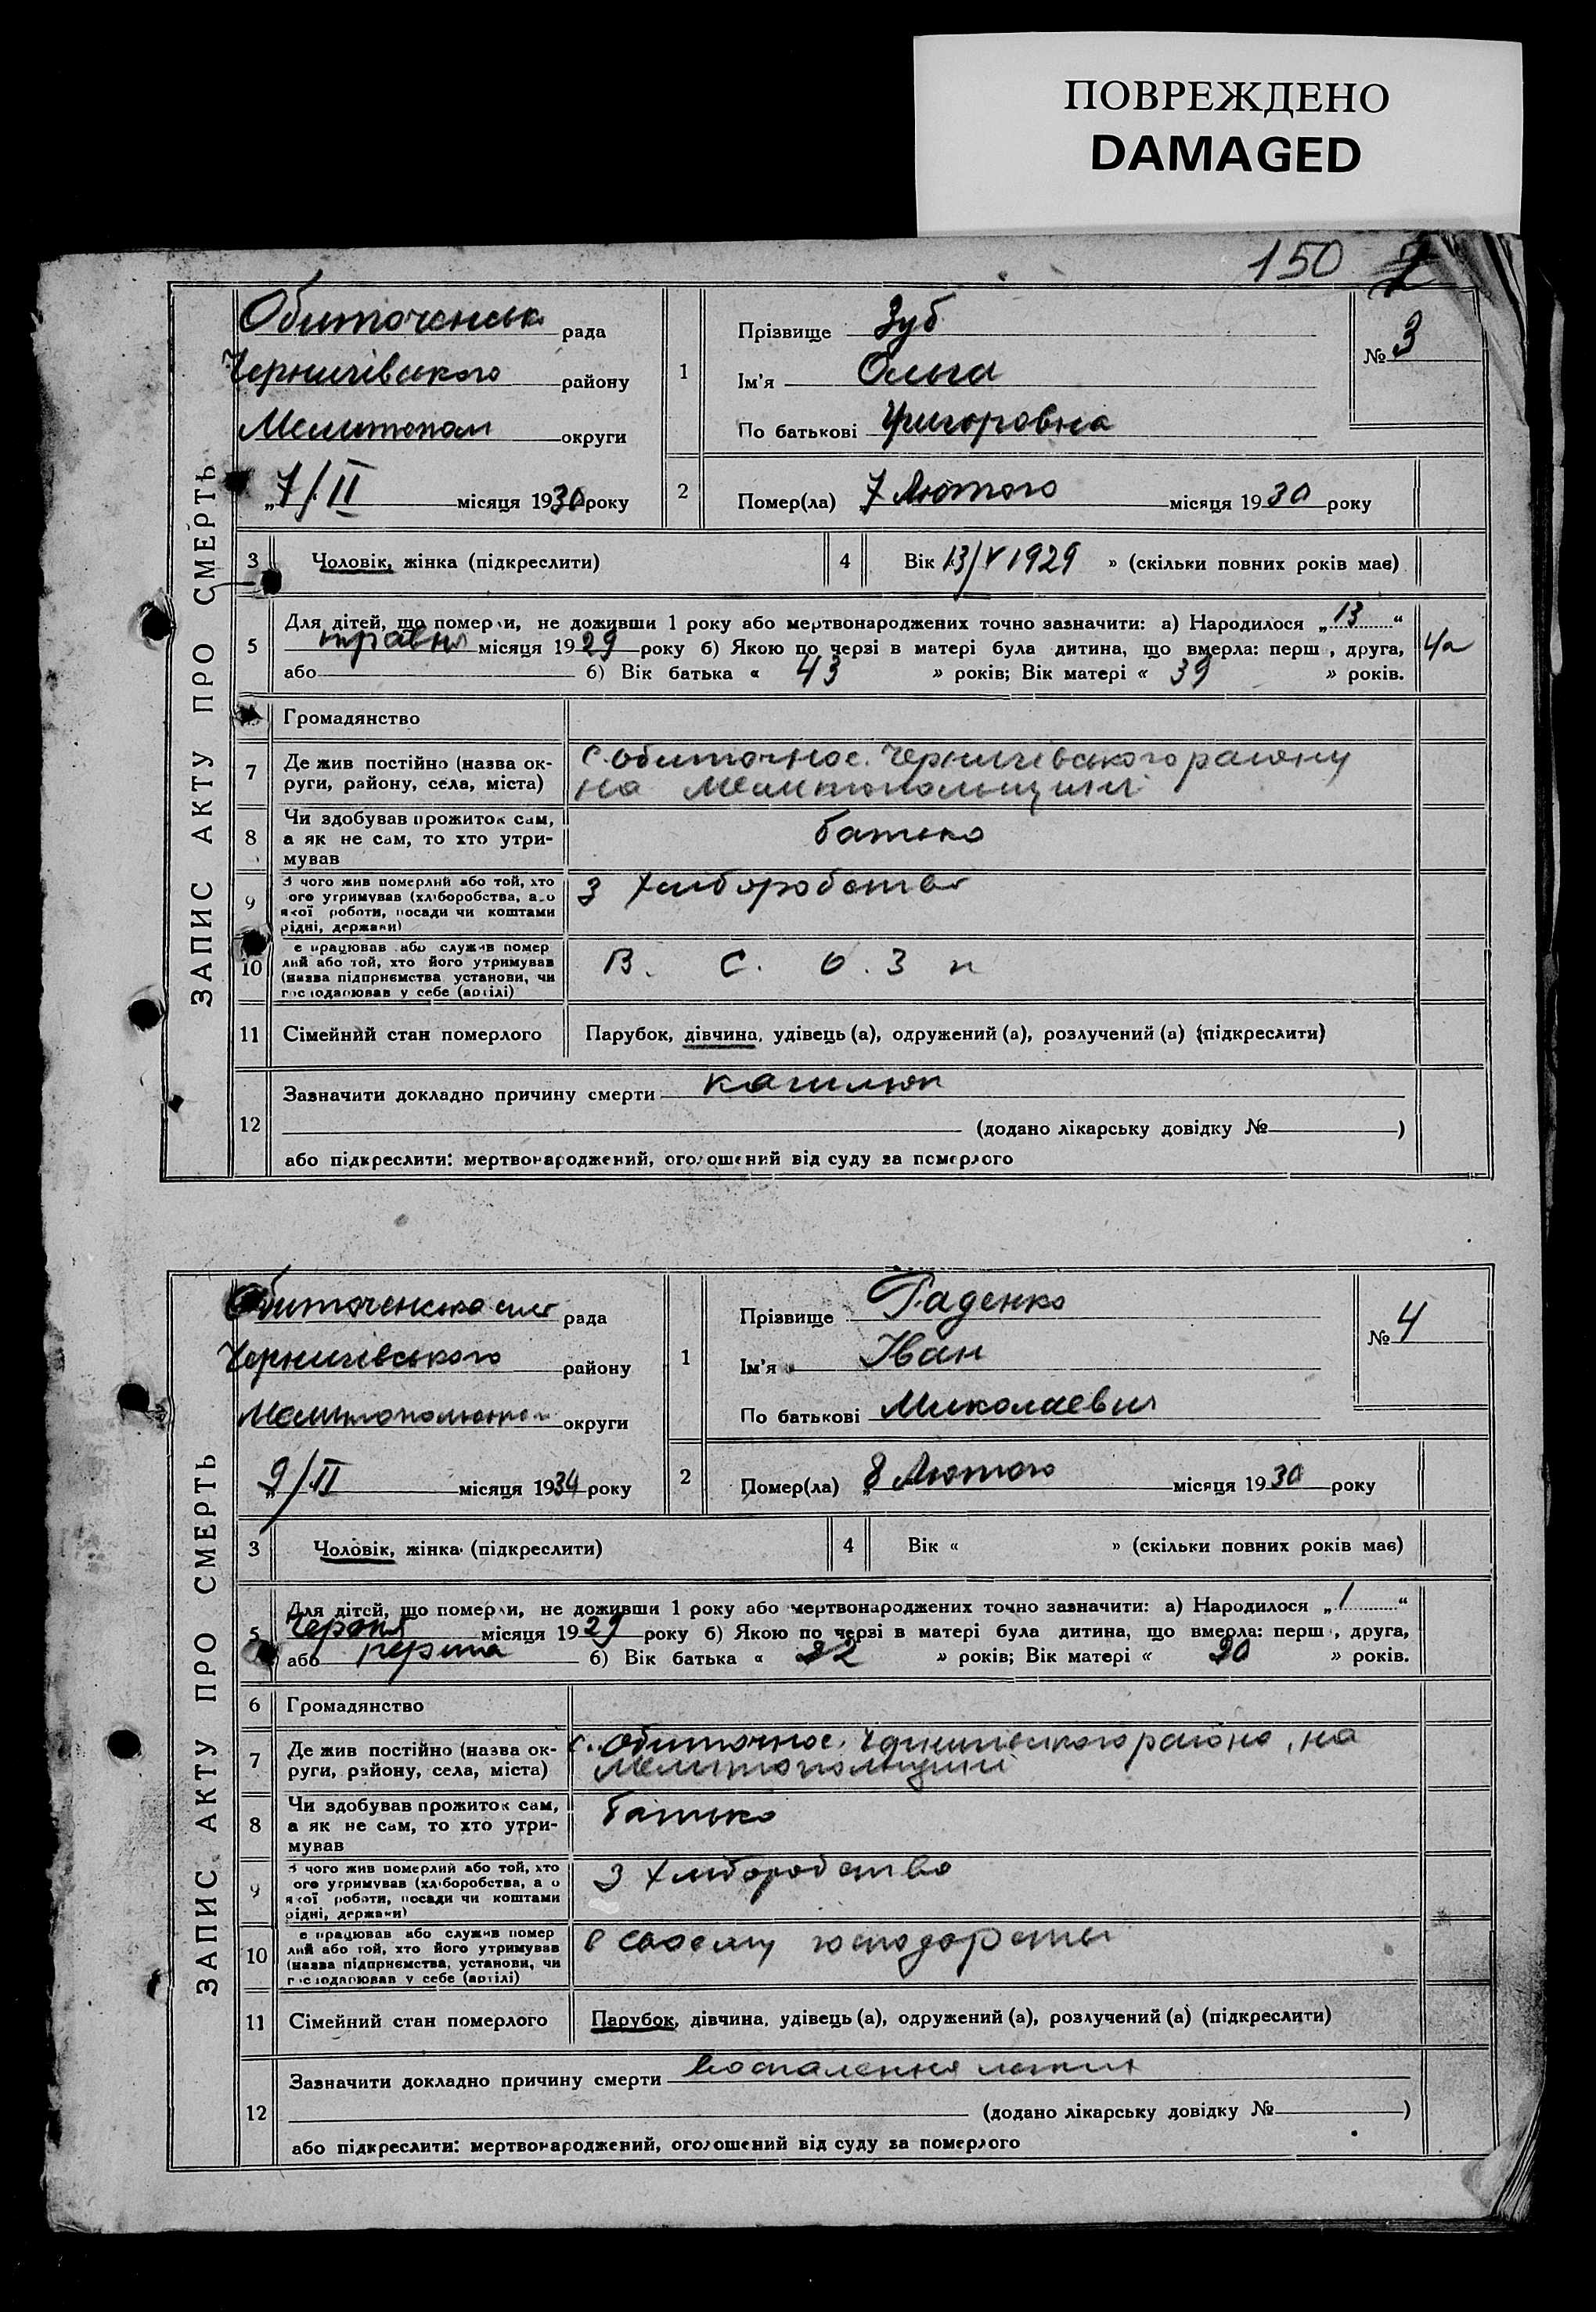 ПОВРЕЖДЕНО
DAMAGED
150
ЗАПИС АКТУ ПРО СМЕРТЬ
Обиточенськ рада
Чернигівського району
Мелитопол округи
„7/II місяця 1930 року
1
Прізвище Зуб
Ім'я Ольга
По батькові Григоровна
№ 3
2
Помер(ла) 7 Лютого місяця 1930 року
3 Чоловік, жінка (підкреслити)
4 Вік 13/V 1929 » (скільки повних років має)
5 Для дітей, що померли, не доживши 1 року або мертвонароджених точно зазначити: а) Народилося „13“
травня місяця 1929 року б) Якою по черзі в матері була дитина, що вмерла: перш , друга,
або б) Вік батька « 43 » років; Вік матері « 39 » років.
Громадянство
7 Де жив постійно (назва ок-
руги, району, села, міста)
с. Обиточное. Чернигівського району
на Мелитопольщині
8 Чи здобував прожиток сам,
а як не сам, то хто утри-
мував
батько
9 З чого жив померлий або той, хто
ого утримував (хліборобства, а о
якої роботи, посади чи коштами
рідні, держави)
З хліборобства
10 е працював або служив помер
лий або той, хто його утримував
(назва підприємства установи, чи
господарював у себе (артілі)
В. С. О. З н
11 Сімейний стан померлого Парубок, дівчина, удівець (а), одружений (а), розлучений (а) (підкреслити)
12 Зазначити докладно причину смерти кашлюк
(додано лікарську довідку № )
або підкреслити: мертвонароджений, оголошений від суду за померлого
ЗАПИС АКТУ ПРО СМЕРТЬ
Обиточенська рада
Чернигівського району
округи
„9/II місяця 1930 року
1
Прізвище Раденко
Ім'я Іван
По батькові Миколаевич
№ 4
2
Помер(ла) „8 Лютого місяця 1930 року
3 Чоловік, жінка (підкреслити)
4 Вік « » (скільки повних років має)
5 Для дітей, що померли, не доживши 1 року або мертвонароджених точно зазначити: а) Народилося „1“
місяця 1929 року б) Якою по черзі в матері була дитина, що вмерла: перш , друга,
або перша б) Вік батька « 22 » років; Вік матері « 20 » років.
6 Громадянство
7 Де жив постійно (назва ок-
руги, району, села, міста)
с. Обиточное. Чернигівського району, на
Мелитопольщині
8 Чи здобував прожиток сам,
а як не сам, то хто утри-
мував
Батько
9 З чого жив померлий або той, хто
ого утримував (хліборобства, а о
якої роботи, посади чи коштами
рідні, держави)
З хліборобства
10 е працював або служив помер
лий або той, хто його утримував
(назва підприємства, установи, чи
господарював у себе (артілі)
в своему господарстві
11 Сімейний стан померлого Парубок, дівчина, удівець (а), одружений (а), розлучений (а) (підкреслити)
12 Зазначити докладно причину смерти воспалення легких
(додано лікарську довідку № )
або підкреслити: мертвонароджений, оголошений від суду за померлого